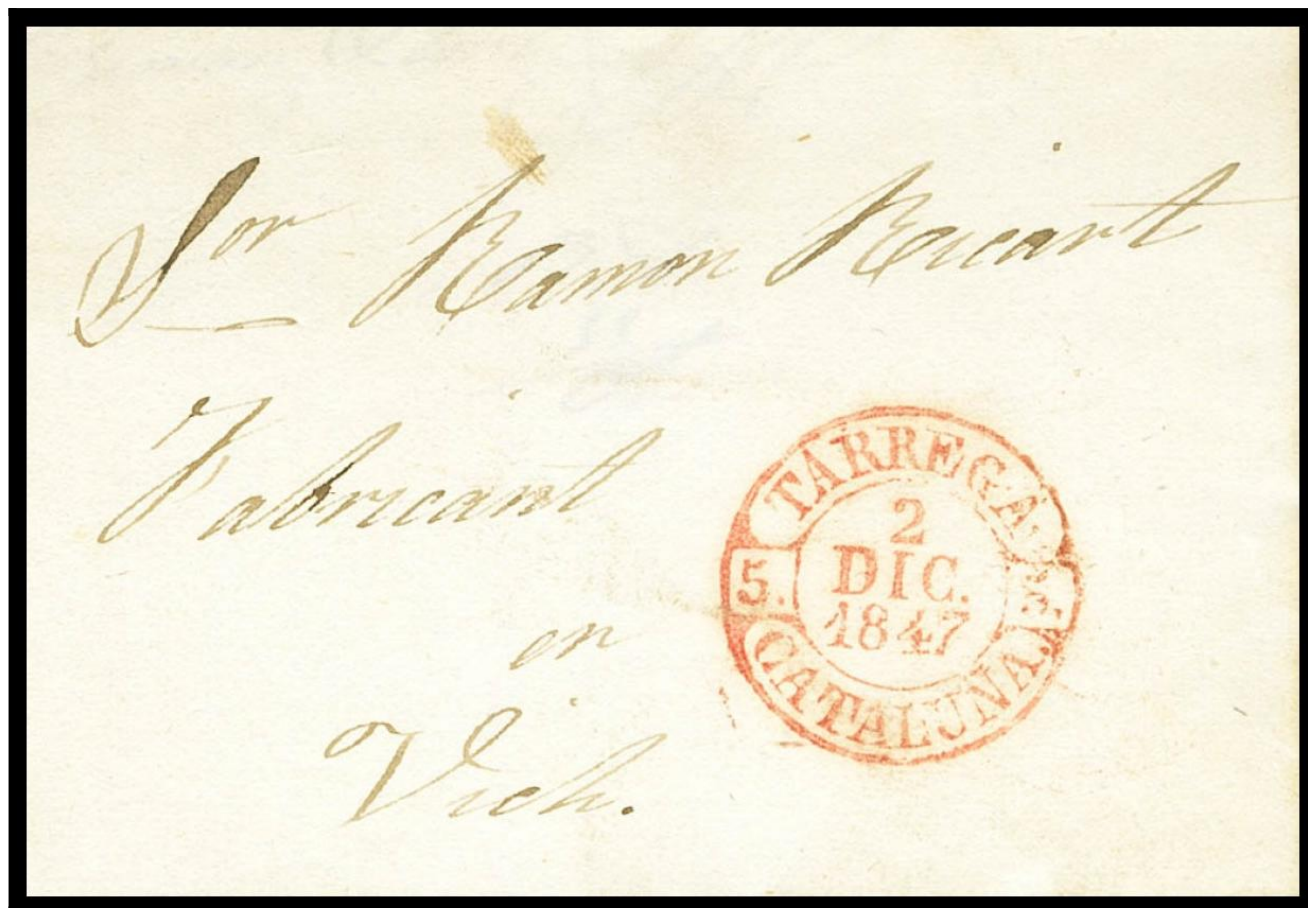 Sor Ramon Ricart
Fabricant
en
Vich.
TARREGA
2
DIC.
1847
5.
CATALUÑA.